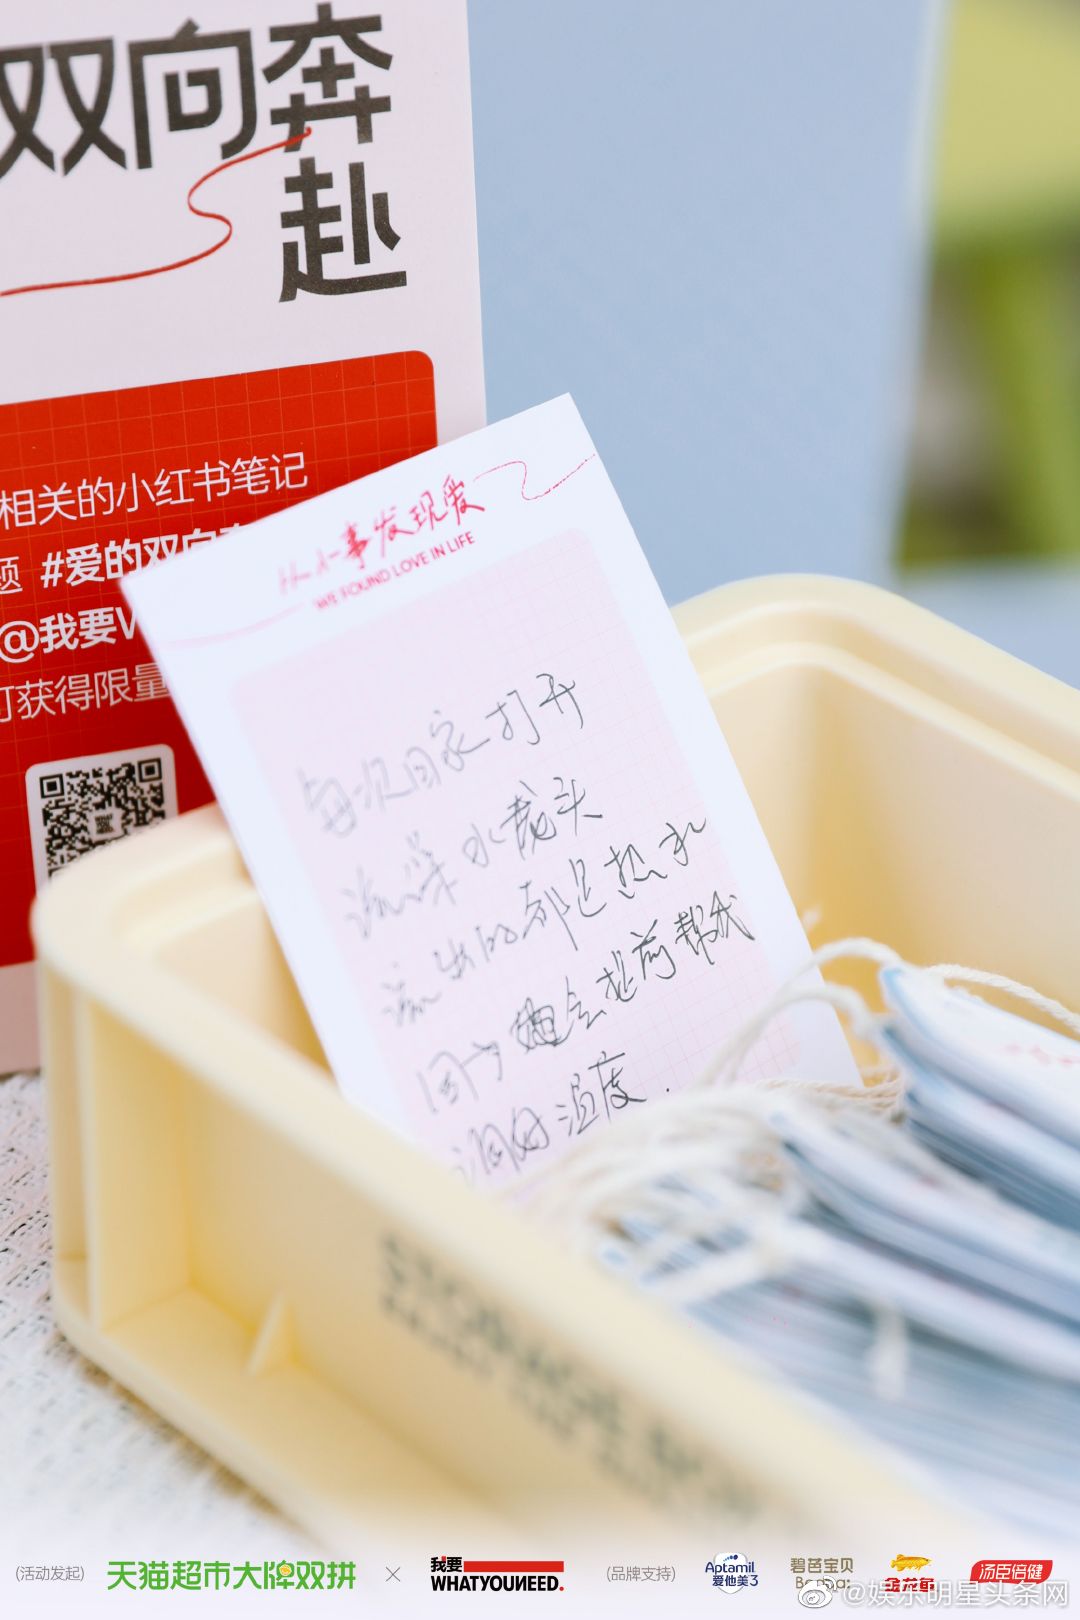 双向奔
赴
相关的小红书笔记
题 #爱的双向奔
@我要W
可获得限量
从小事发现爱
WE FOUND LOVE IN LIFE
每次回家打开
洗澡水龙头
流出的都是热水
因为她会提前帮我
调好温度.
(活动发起)
天猫超市大牌双拼
×
我要
WHATYOUNEED.
(品牌支持)
Aptamil
爱他美3
碧芭宝贝
金龙鱼
汤臣倍健
@娱乐明星头条网